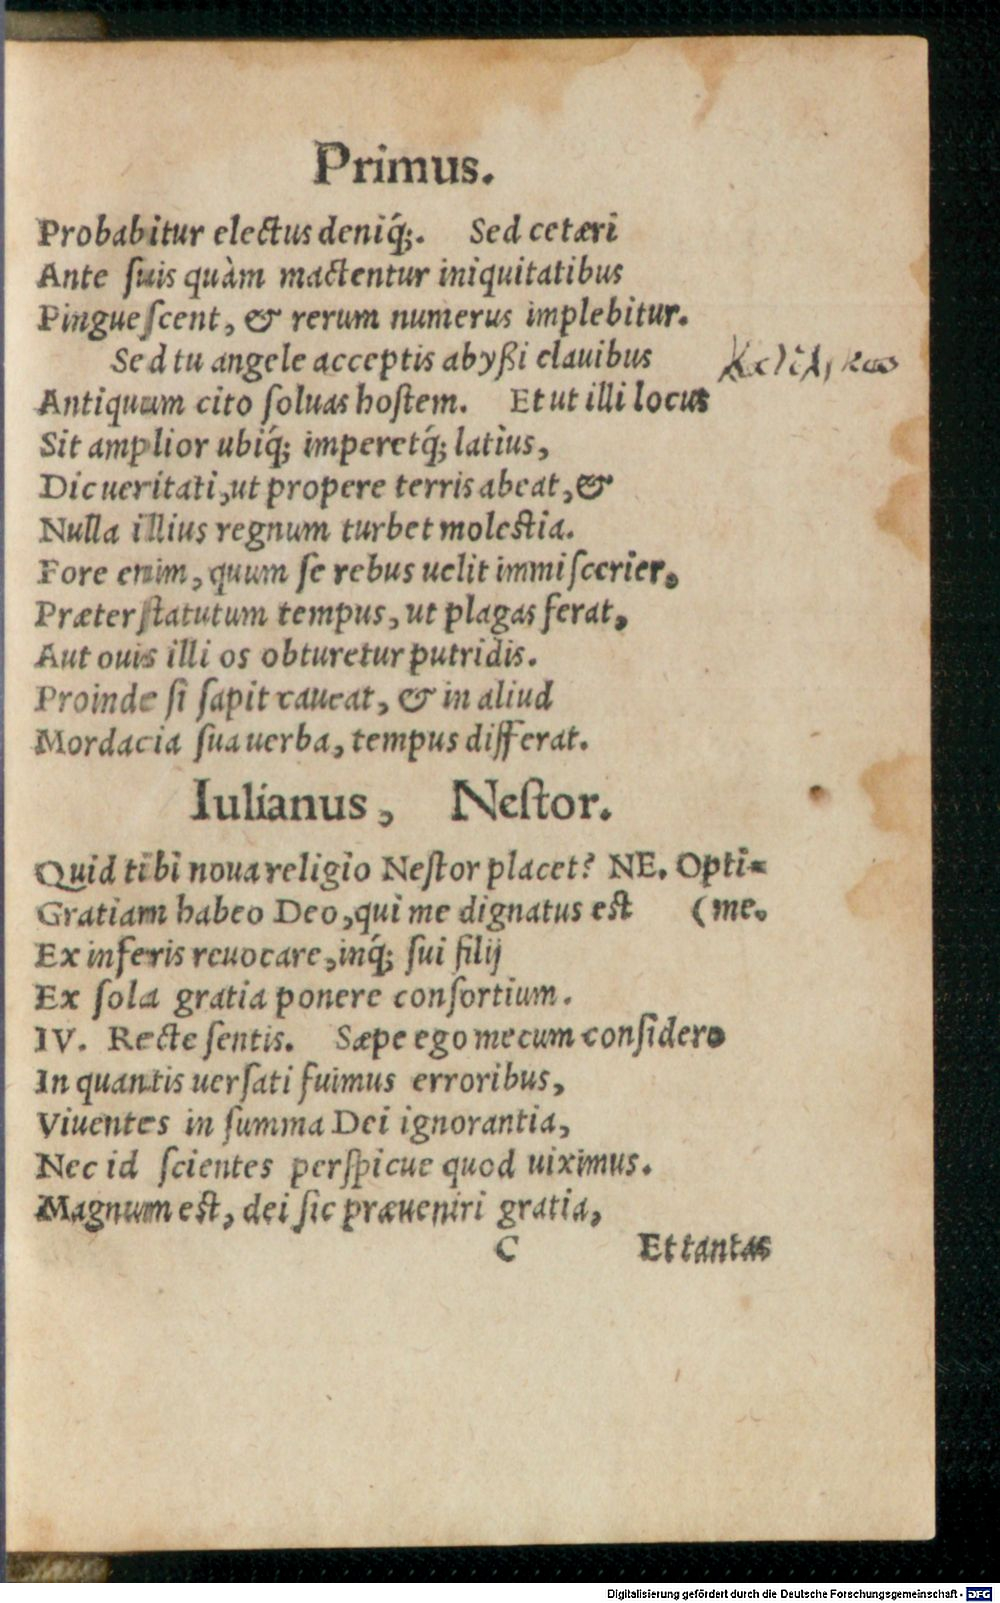 Primus.
Probabitur electus deniq́;. Sed cetæri
Ante suis quàm mactentur iniquitatibus
Pinguescent, & rerum numerus implebitur.
Sed tu angele acceptis abyßi clauibus
Antiquum cito soluas hostem. Et ut illi locus
Sit amplior ubiq́; imperetq́; latius,
Dic ueritati, ut propere terris abeat, &
Nulla illius regnum turbet molestia.
Fore enim, quum se rebus uelit immiscerier,
Præter statutum tempus, ut plagas ferat,
Aut ouis illi os obturetur putridis.
Proinde si sapit caueat, & in aliud
Mordacia sua uerba, tempus differat.
Iulianus, Nestor.
Quid tibi noua religio Nestor placet? NE. Opti-
Gratiam habeo Deo, qui me dignatus est (me.
Ex inferis reuocare, inq́; sui filij
Ex sola gratia ponere consortium.
IV. Recte sentis. Sæpe ego mecum considero
In quantis uersati fuimus erroribus,
Viuentes in summa Dei ignorantia,
Nec id scientes perspicue quod uiximus.
Magnum est, dei sic præueniri gratia,
C Et tantas
Digitalisierung gefördert durch die Deutsche Forschungsgemeinschaft - DFG